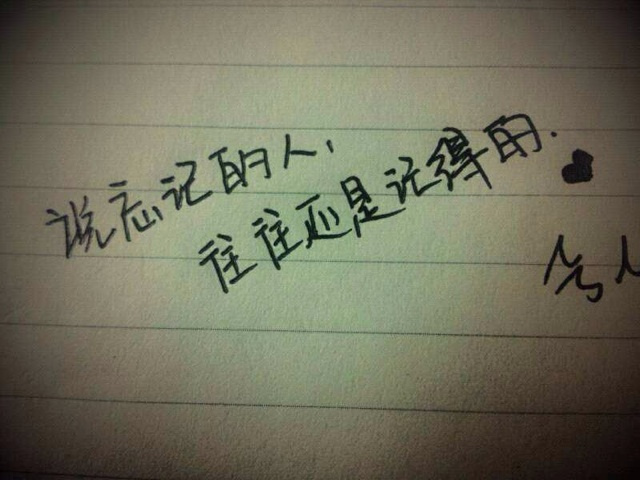 说忘记的人,
往往还是记得的.